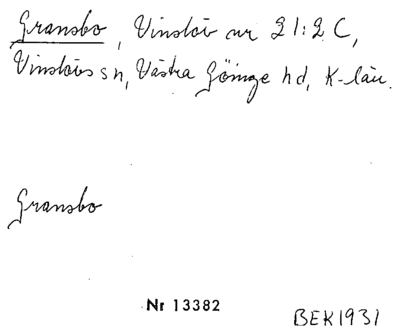 Gransbo, Vinslöv nr 21:2 C,
Vinslövs sn, Västra Göinge hd, K-län.
Gransbo
Nr 13382
BEK1931